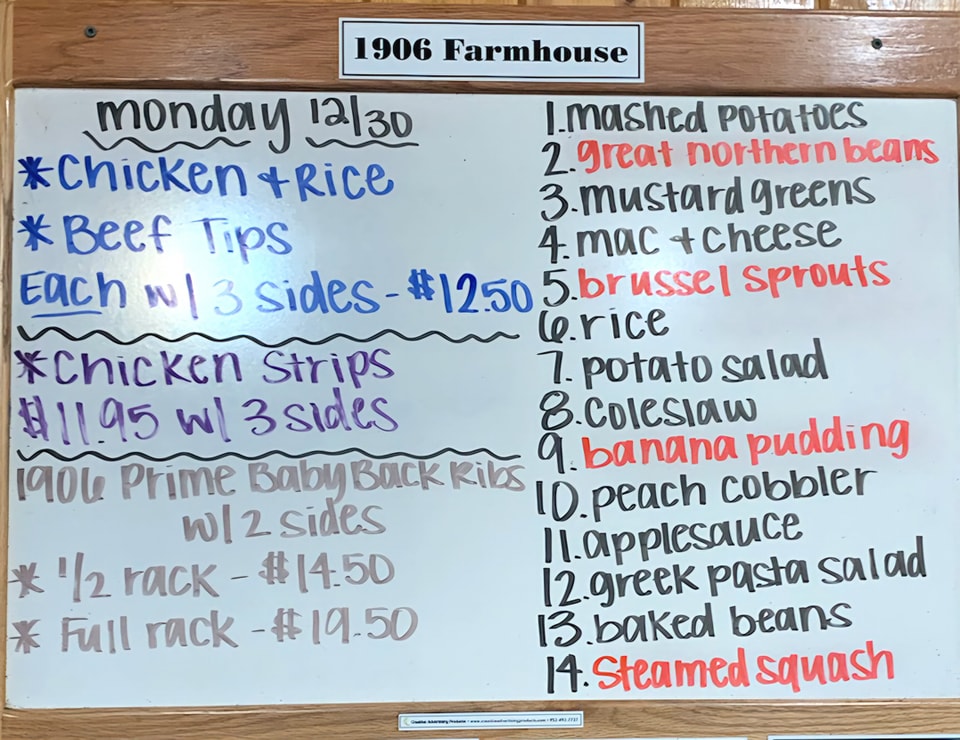 1906 Farmhouse
monday 12/30
*Chicken + Rice
*Beef Tips
Each w/ 3 sides - $12.50
*Chicken Strips
$11.95 w/ 3 sides
1906 Prime Baby Back Ribs
w/ 2 sides
* 1/2 rack - $14.50
* Full rack - $19.50
1. mashed potatoes
2. great northern beans
3. mustard greens
4. mac + cheese
5. brussel sprouts
6. rice
7. potato salad
8. coleslaw
9. banana pudding
10. peach cobbler
11. applesauce
12. greek pasta salad
13. baked beans
14. Steamed squash